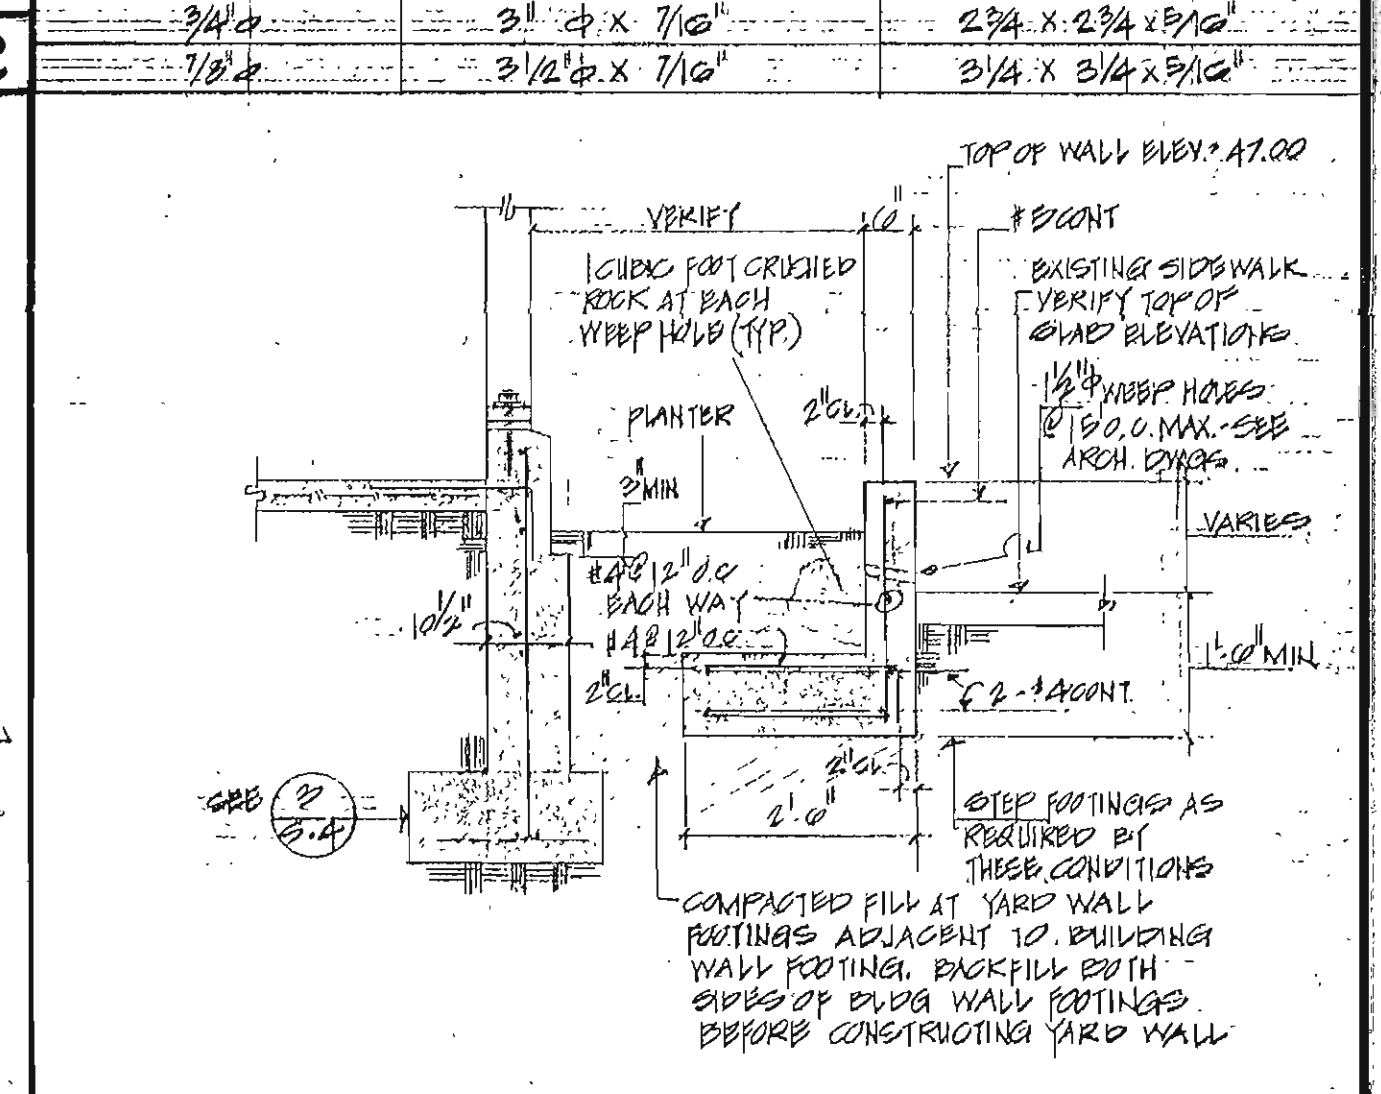 3/4"φ 3" φ X 7/16" 2 3/4 X 2 3/4 X 5/16"
7/8"φ 3 1/2"φ X 7/16" 3 1/4 X 3 1/4 X 5/16"
TOP OF WALL ELEV. 47.00
VERIFY 6" #5 CONT
1 CUBIC FOOT CRUSHED
ROCK AT EACH
WEEP HOLE (TYP.)
EXISTING SIDEWALK
VERIFY TOP OF
SLAB ELEVATIONS
1 1/2"φ WEEP HOLES
@ 15' O.C. MAX.-SEE
ARCH. DWGS.
PLANTER
2" CL.
3" MIN
VARIES
#4@12" O.C
EACH WAY
10 1/2"
#4@12" O.C
2" CL.
1'-6" MIN
2-#4 CONT.
2" CL.
2'-6"
SEE 3
S.4
STEP FOOTINGS AS
REQUIRED BY
THESE CONDITIONS
COMPACTED FILL AT YARD WALL
FOOTINGS ADJACENT TO BUILDING
WALL FOOTING. BACKFILL BOTH
SIDES OF BLDG WALL FOOTINGS
BEFORE CONSTRUCTING YARD WALL